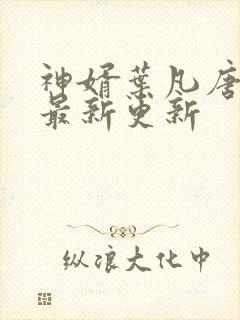 神婿叶凡唐
最新更新
纵浪大化中